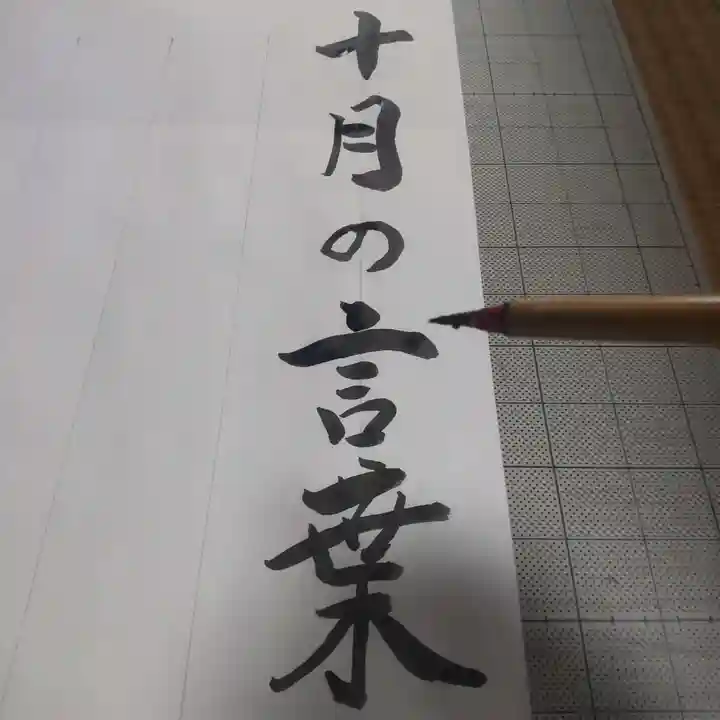 十月の言葉